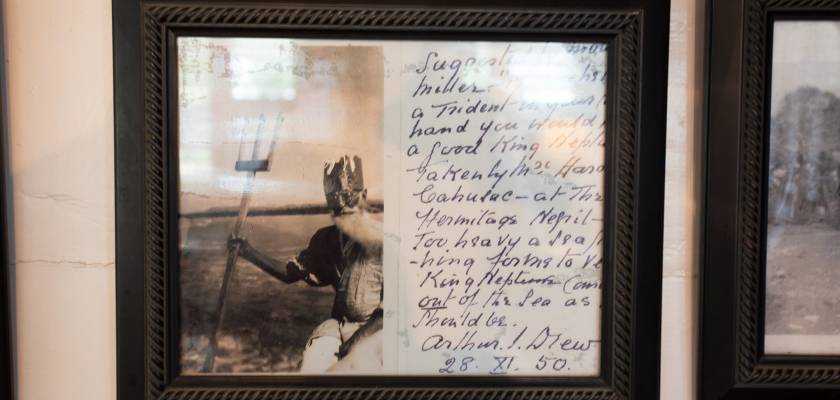 Suggest
miller
a Trident in your
hand you would
a good King Neptu
Taken by Mrs Haro
Cahusac - at The
Hermitage Nepil-
Too heavy a Sea
-hing forms to ve
King Neptune Com
out of the Sea as
Should be.
Arthur. J. Drew
28. XI. 50.